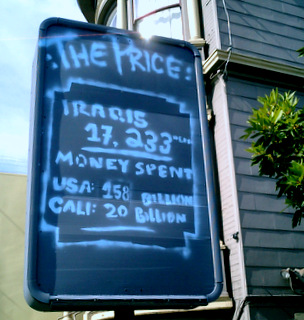 :THE PRICE:
IRAQIS
17,233
MONEY SPENT
USA: 158 BILLION
CALI: 20 BILLION